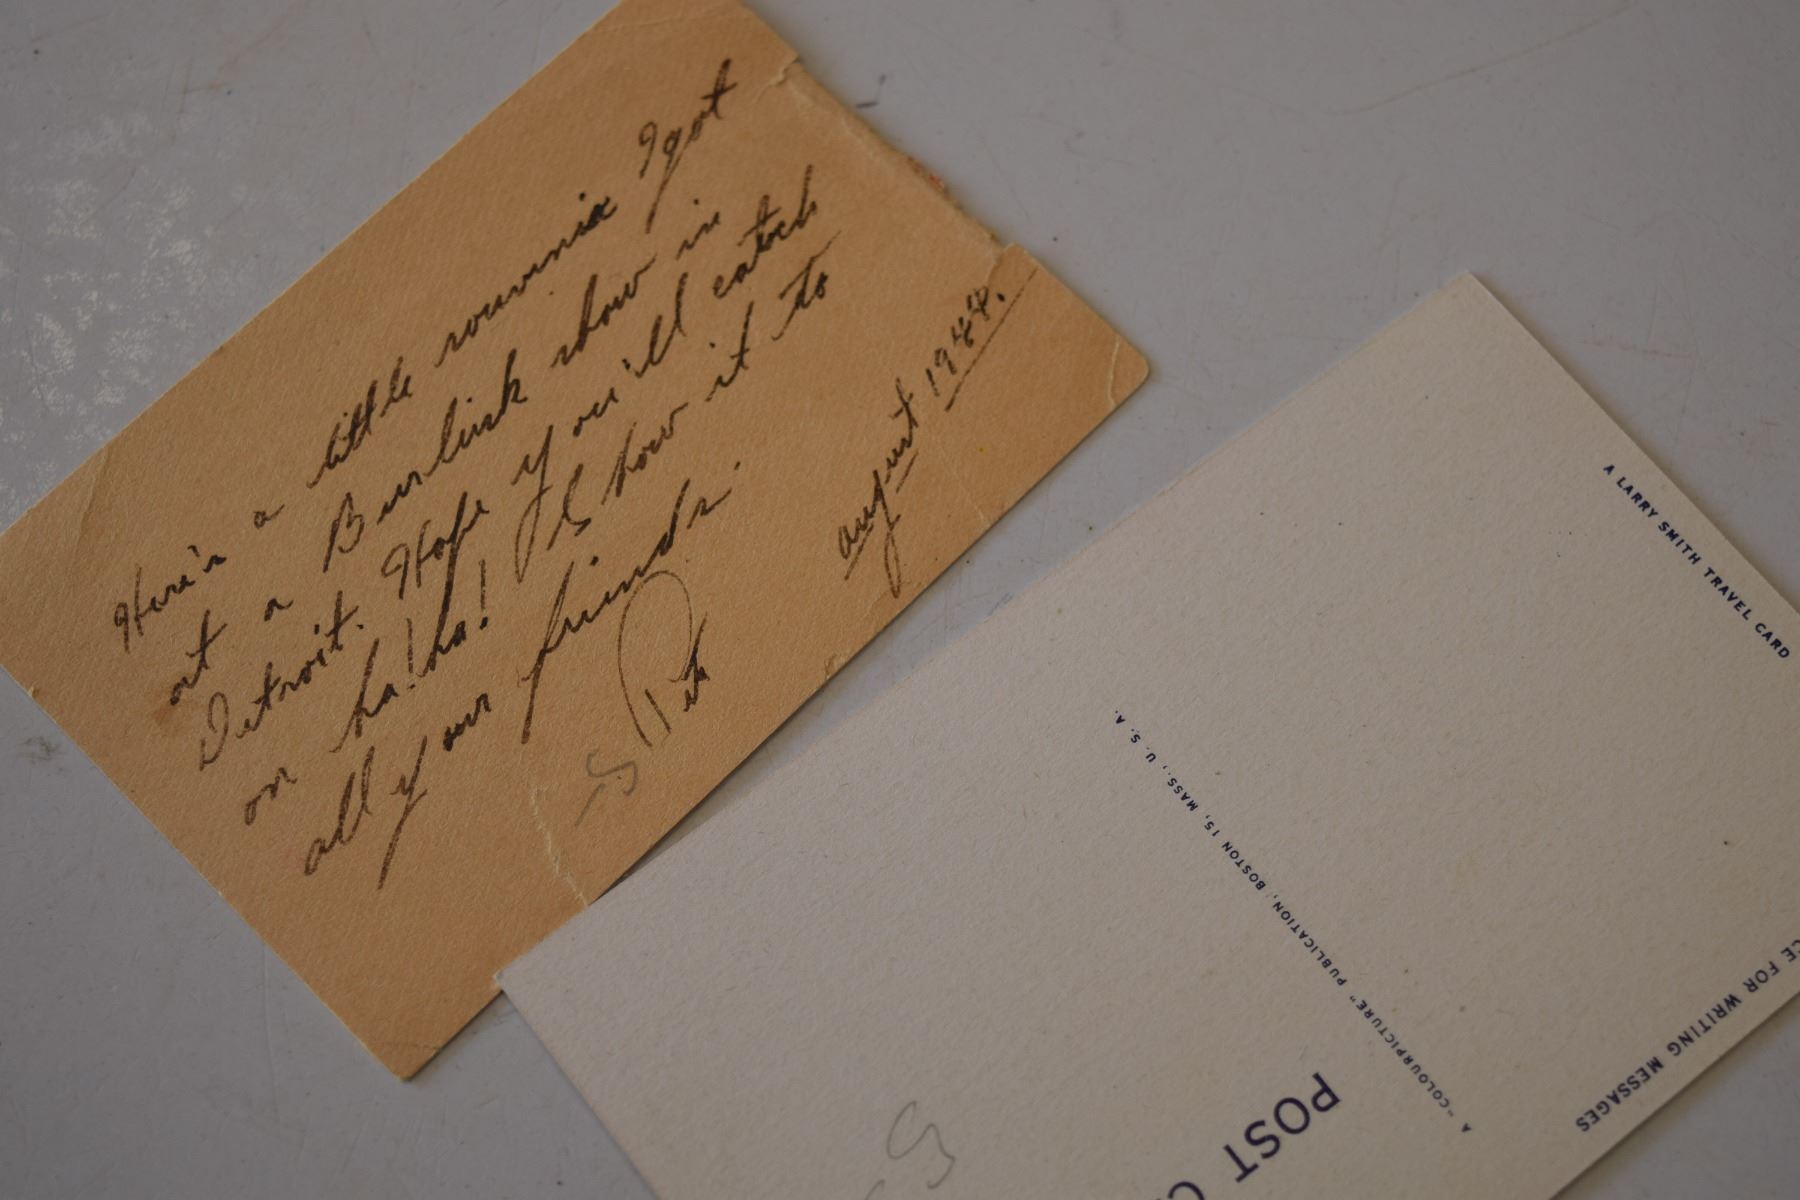 Here's a little souvenir I got
at a Burlisk show in
Detroit. Hope you'll catch
on ha! ha! Show it to
all your friends.
Pete
August 1944.
A LARRY SMITH TRAVEL CARD
A "COLOURPICTURE" PUBLICATION, BOSTON 15, MASS., U. S. A.
CE FOR WRITING MESSAGES
POST C